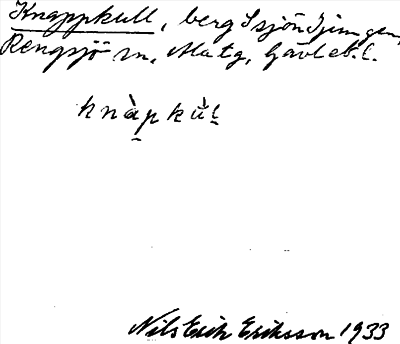 Knappkull, berg S sjön Tjinngen,
Rengsjö sn, Matg, Gävleb. l.
knàpkùl
Nils Erik Eriksson 1933